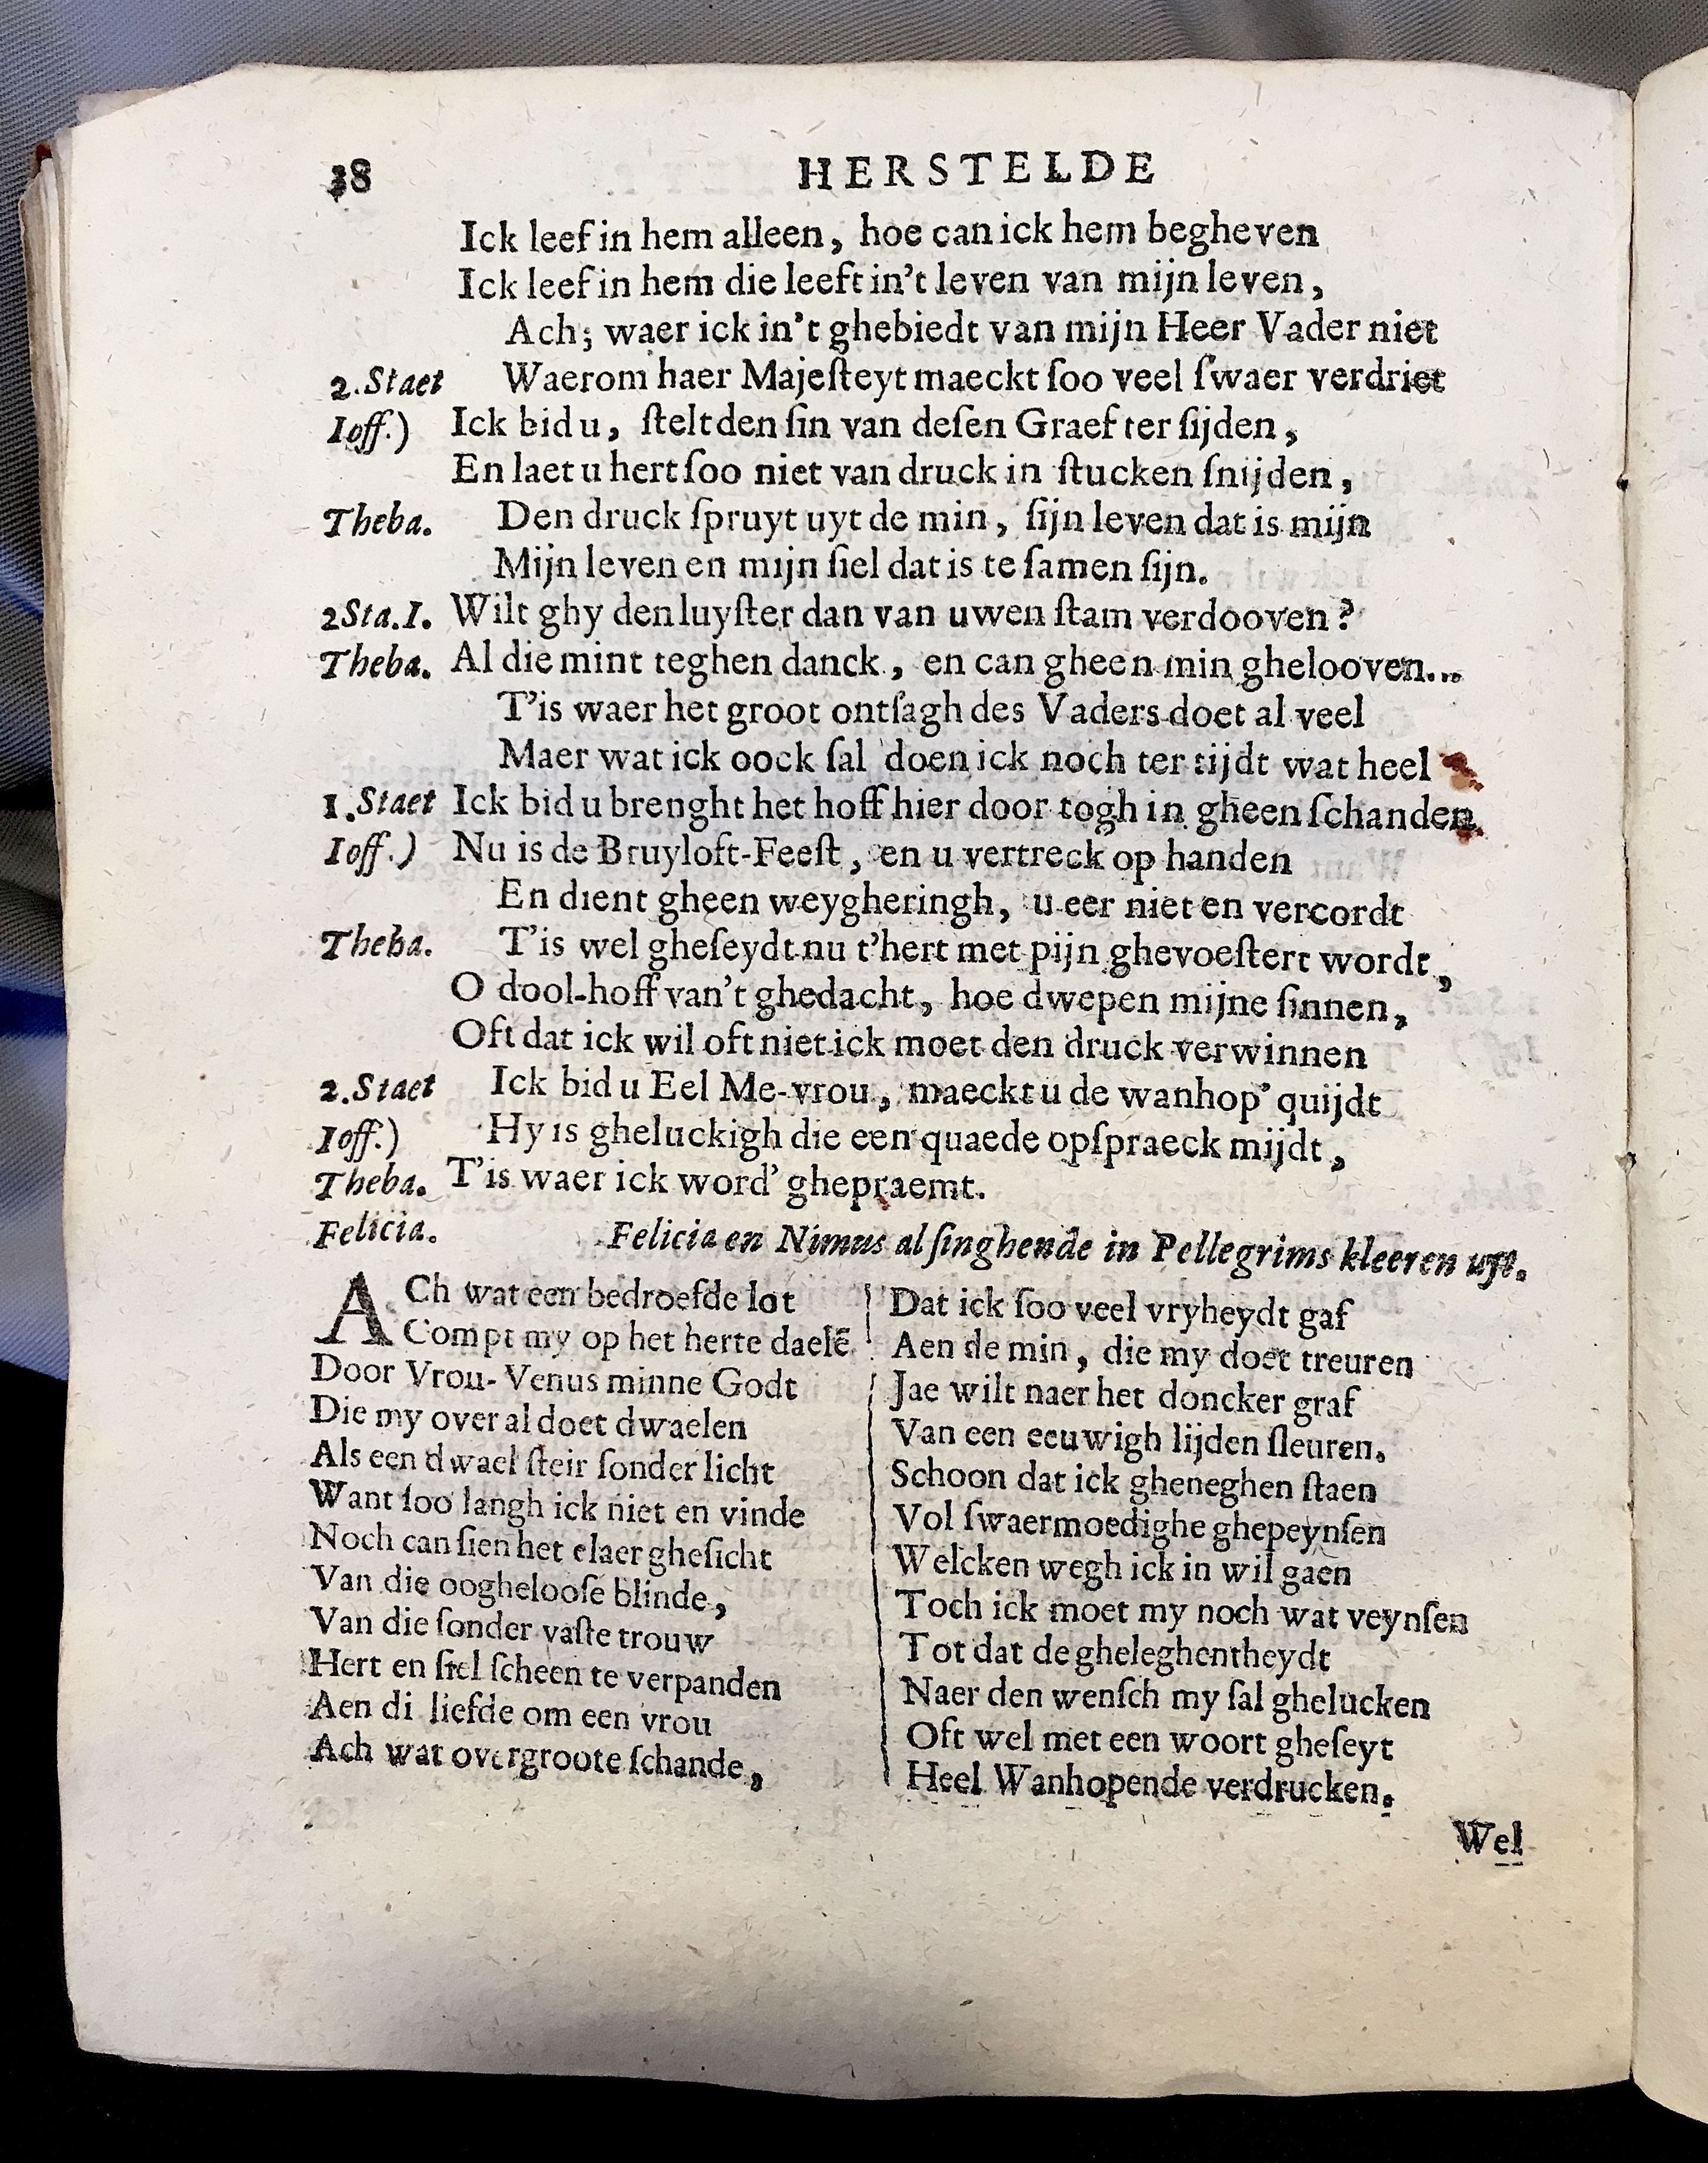 38 HERSTELDE
Ick leef in hem alleen, hoe can ick hem begheven
Ick leef in hem die leeft in't leven van mijn leven,
Ach; waer ick in't ghebiedt van mijn Heer Vader niet
2.Staet Waerom haer Majeſteyt maeckt ſoo veel ſwaer verdriet
Ioff.) Ick bid u, ſtelt den ſin van deſen Graef ter ſijden,
En laet u hert ſoo niet van druck in ſtucken ſnijden,
Theba. Den druck ſpruyt uyt de min, ſijn leven dat is mijn
Mijn leven en mijn ſiel dat is te ſamen ſijn.
2Sta.I. Wilt ghy den luyſter dan van uwen ſtam verdooven?
Theba. Al die mint teghen danck, en can gheen min ghelooven...
T'is waer het groot ontſagh des Vaders doet al veel
Maer wat ick oock ſal doen ick noch ter tijdt wat heel
1.Staet Ick bid u brenght het hoff hier door togh in gheen ſchanden,
Ioff.) Nu is de Bruyloft-Feeſt, en u vertreck op handen
En dient gheen weygheringh, u eer niet en vercordt
Theba. T'is wel gheſeydt nu t'hert met pijn ghevoeſtert wordt,
O dool-hoff van't ghedacht, hoe dwepen mijne ſinnen,
Oft dat ick wil oft niet ick moet den druck verwinnen
2.Staet Ick bid u Eel Me-vrou, maeckt u de wanhop' quijdt
Ioff.) Hy is gheluckigh die een quaede opſpraeck mijdt,
Theba. T'is waer ick word' ghepraemt.
Felicia. Felicia en Nimus al ſinghende in Pellegrims kleeren uyt.
ACh wat een bedroefde lot
Compt my op het herte daelē
Door Vrou-Venus minne Godt
Die my over al doet dwaelen
Als een dwael ſteir ſonder licht
Want ſoo langh ick niet en vinde
Noch can ſien het claer gheſicht
Van die oogheloose blinde,
Van die ſonder vaſte trouw
Hert en ſiel ſcheen te verpanden
Aen di liefde om een vrou
Ach wat overgroote ſchande,
Dat ick ſoo veel vryheydt gaf
Aen de min, die my doet treuren
Jae wilt naer het doncker graf
Van een eeuwigh lijden ſleuren.
Schoon dat ick gheneghen ſtaen
Vol ſwaermoedighe ghepeynſen
Welcken wegh ick in wil gaen
Toch ick moet my noch wat veynſen
Tot dat de gheleghentheydt
Naer den wenſch my ſal ghelucken
Oft wel met een woort gheſeyt
Heel Wanhopende verdrucken.
Wel